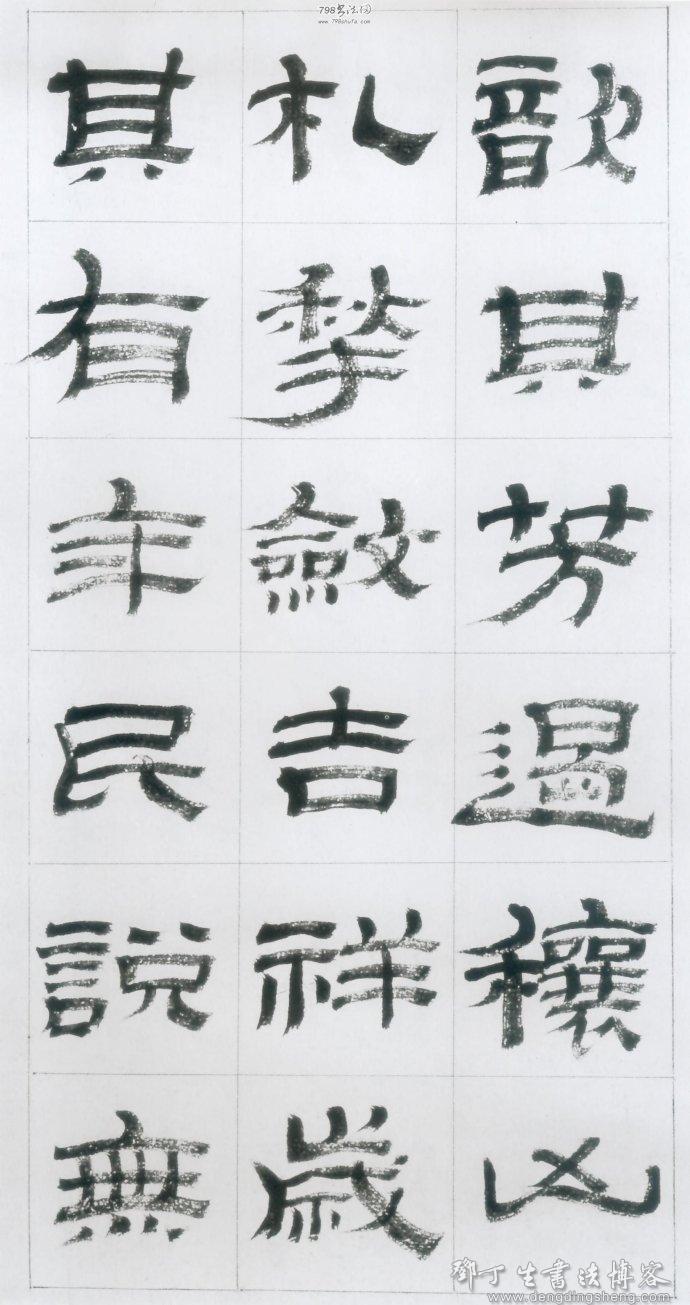 798書法网
www.798shufa.com
歆其芳遏穰凶
札揫斂吉祥歲
其有年民說無
鄧丁生書法博客
www.dengdingsheng.com